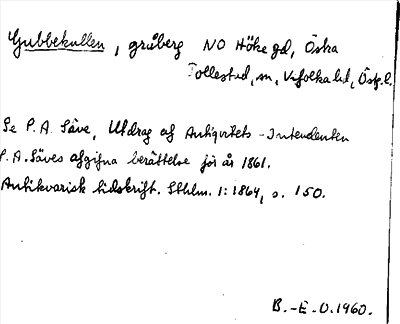 Gubbekullen, gråberg NO Höke gd, Östra
Tollestad, sn, Vifolka hd, Östg.l.
Se P.A. Säve, Utdrag af Antiqvitets-Intendenten
P.A. Säves afgifna berättelse för år 1861.
Antikvarisk tidskrift. Sthlm. 1:1864, s. 150.
B.-E.O.1960.